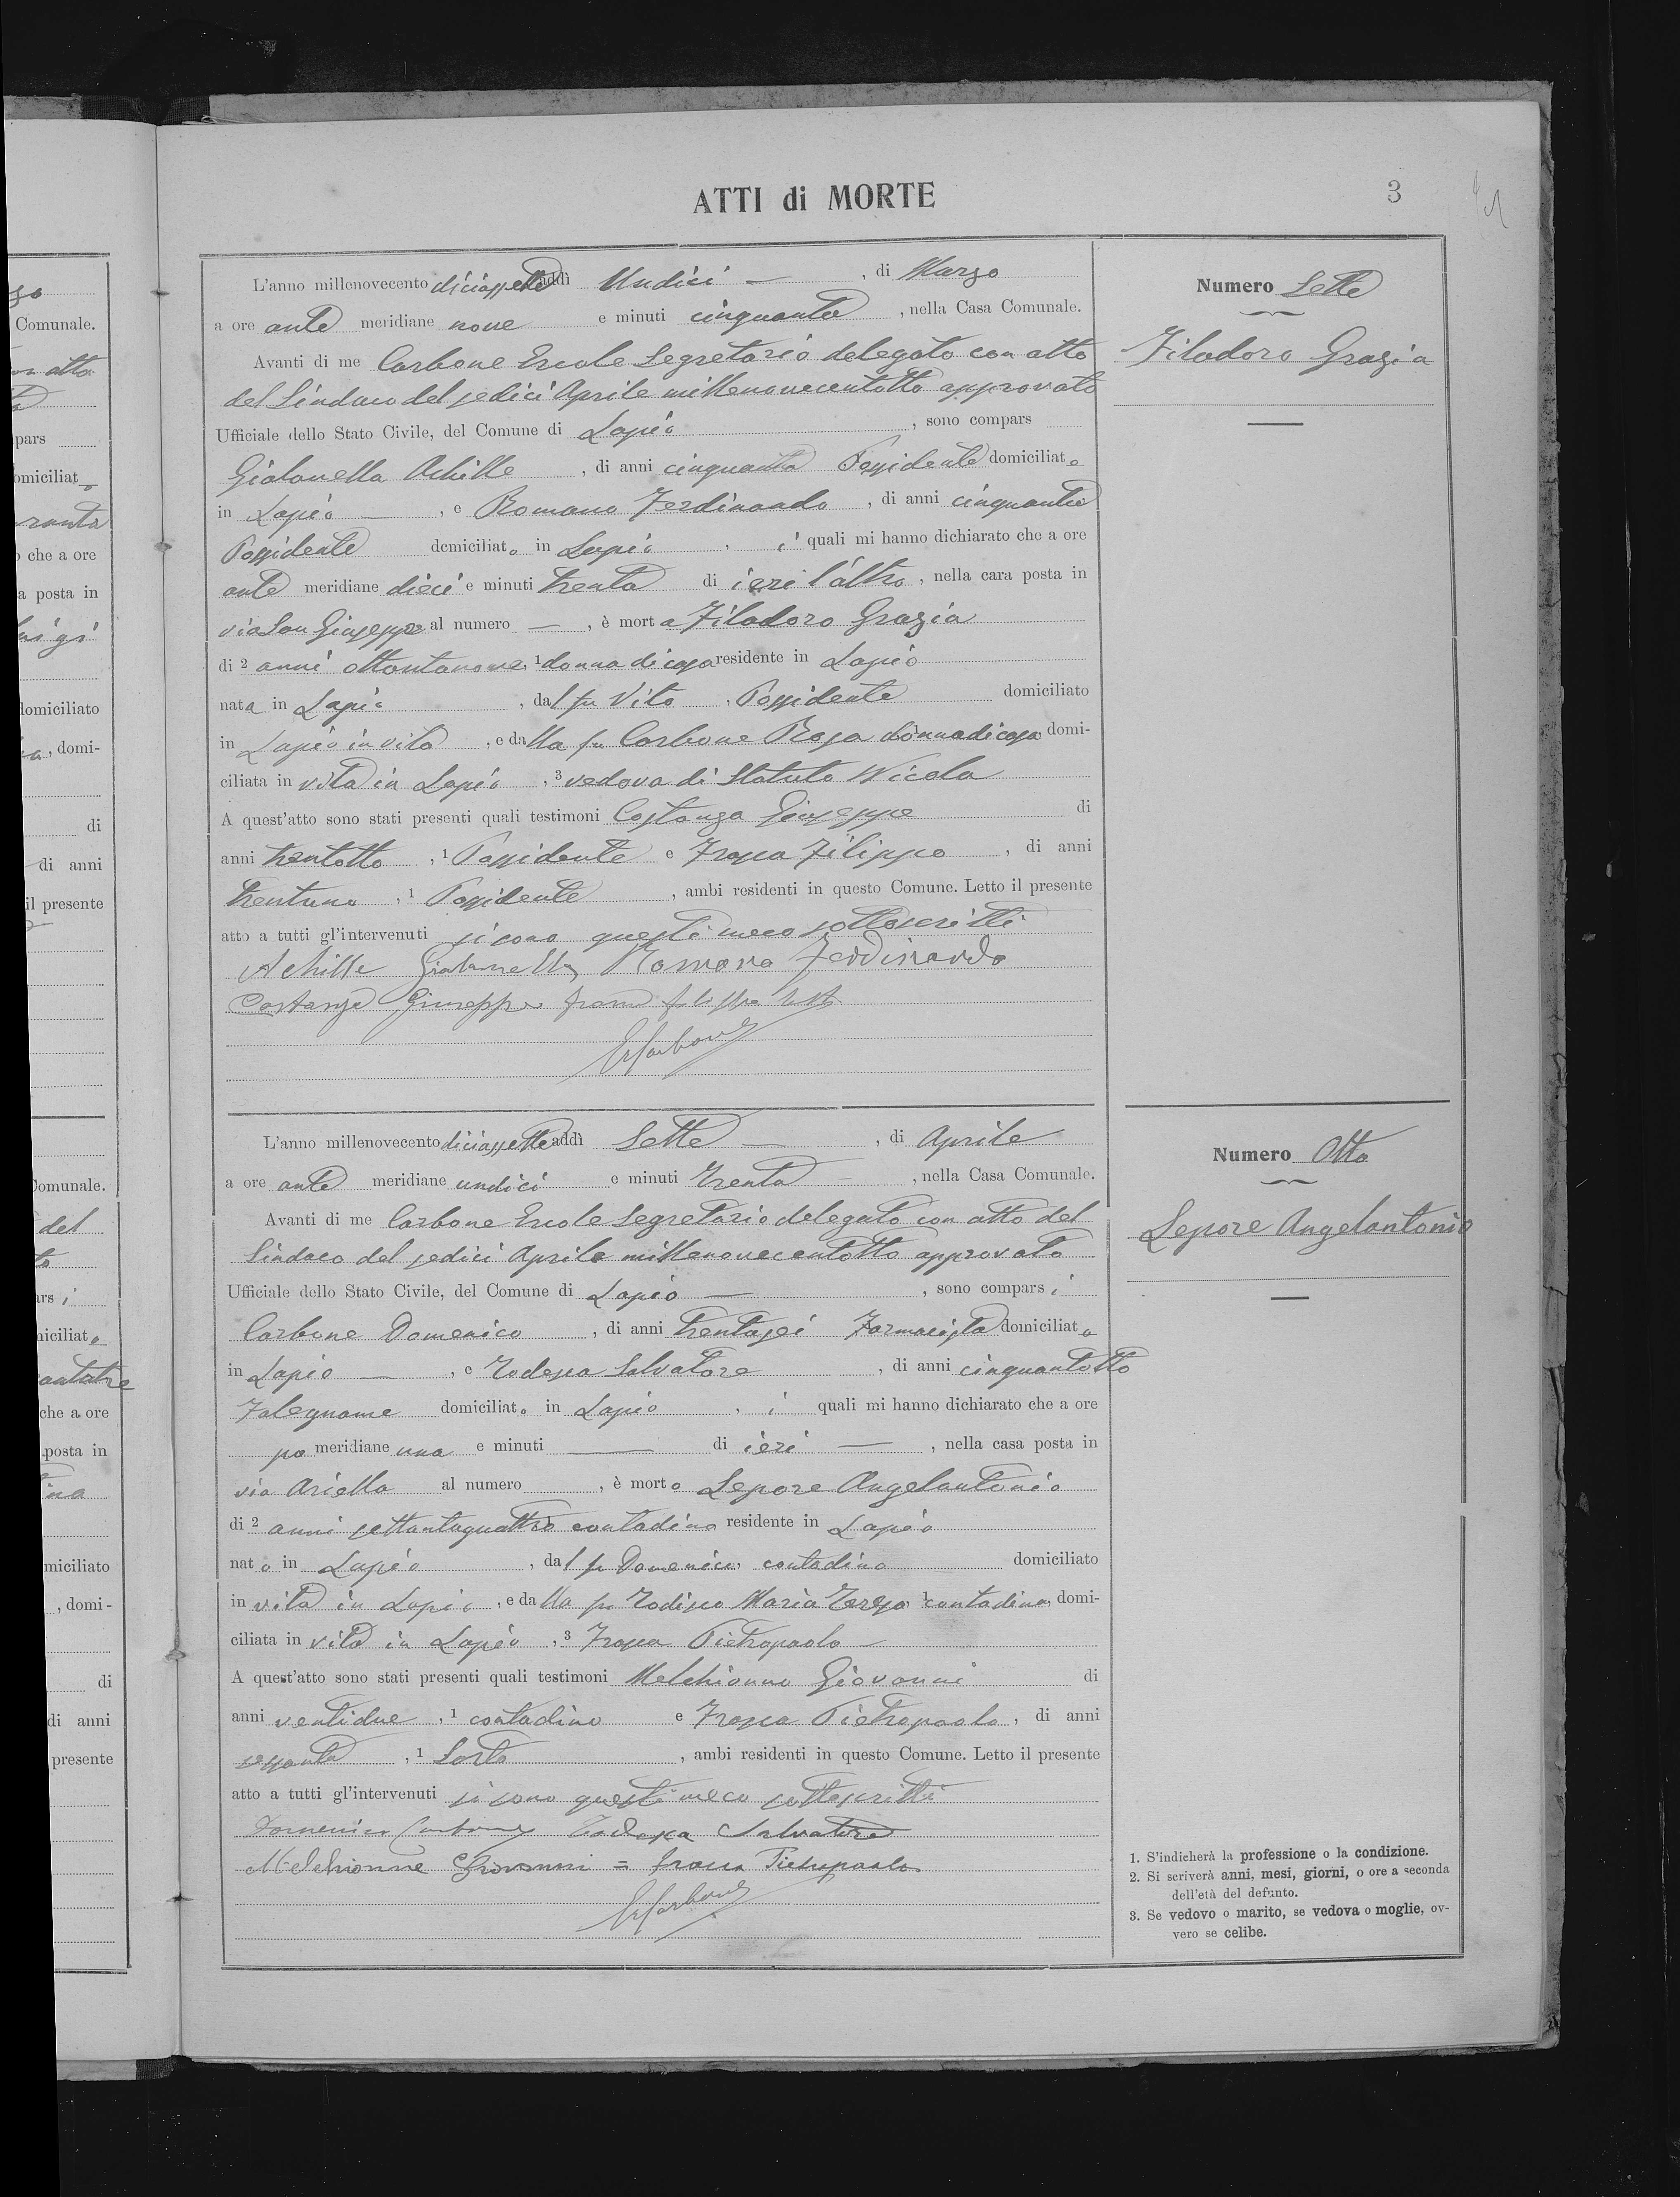 ATTI di MORTE
3
L'anno millenovecento diciassette addì Undici — , di Marzo
a ore ante meridiane nove e minuti cinquanta , nella Casa Comunale.
Avanti di me Carbone Ercole Segretario delegato con atto
del Sindaco del sedici Aprile millenovecentotto approvato
Ufficiale dello Stato Civile, del Comune di Lapio , sono compars
Giatonella Achille , di anni cinquanta Possidente domiciliato
in Lapio — , e Romano Ferdinando , di anni cinquanta
Possidente domiciliato in Lapio , i quali mi hanno dichiarato che a ore
ante meridiane dieci e minuti trenta di ieri l'altro , nella cara posta in
via San Giuseppe al numero — , è morta Filadoro Grazia
di 2 anni ottantanove, 1 donna di casa residente in Lapio
nata in Lapio , dal fu Vito , Possidente domiciliato
in Lapio in vita , e dalla fu Carbone Rosa donna di casa domi-
ciliata in vita in Lapio , 3 vedova di Statuto Nicola
A quest'atto sono stati presenti quali testimoni Costanza Giuseppe di
anni trentotto , 1 Possidente e Frasca Filippo , di anni
trentuno , 1 Possidente , ambi residenti in questo Comune. Letto il presente
atto a tutti gl'intervenuti si sono questi meco sottoscritti
Achille Giatonella Romano Ferdinando
Costanza Giuseppe
Numero Sette
Filodoro Grazia
L'anno millenovecento diciassette addì Sette — , di Aprile
a ore ante meridiane undici e minuti Trenta — , nella Casa Comunale.
Avanti di me Carbone Ercole Segretario delegato con atto del
Sindaco del sedici Aprile millenovecentotto approvato
Ufficiale dello Stato Civile, del Comune di Lapio — , sono comparsi
Carbone Domenico , di anni trentasei Farmacista domiciliato
in Lapio — , e Todesca Salvatore , di anni cinquantotto
Falegname domiciliato in Lapio , i quali mi hanno dichiarato che a ore
po meridiane una e minuti — di ieri — , nella casa posta in
via Ariella al numero , è morto Lepore Angelantonio
di 2 anni settantaquattro contadino residente in Lapio
nato in Lapio , dal fu Domenico contadino domiciliato
in vita in Lapio , e dalla fu Todisca Maria Teresa contadina, domi-
ciliata in vita in Lapio , 3 Frasca Pietropaolo —
A quest'atto sono stati presenti quali testimoni Melchionno Giovanni di
anni ventidue , 1 contadino e Frasca Pietropaolo , di anni
sessanta , 1 Sarto , ambi residenti in questo Comune. Letto il presente
atto a tutti gl'intervenuti si sono questi meco sottoscritti
Domenico Carbone Todesca Salvatore
Melchionne Giovanni = Frasca Pietropaolo
Numero Otto
Lepore Angelantonio
1. S'indicherà la professione o la condizione.
2. Si scriverà anni, mesi, giorni, o ore a seconda
dell'età del defunto.
3. Se vedovo o marito, se vedova o moglie, ov-
vero se celibe.